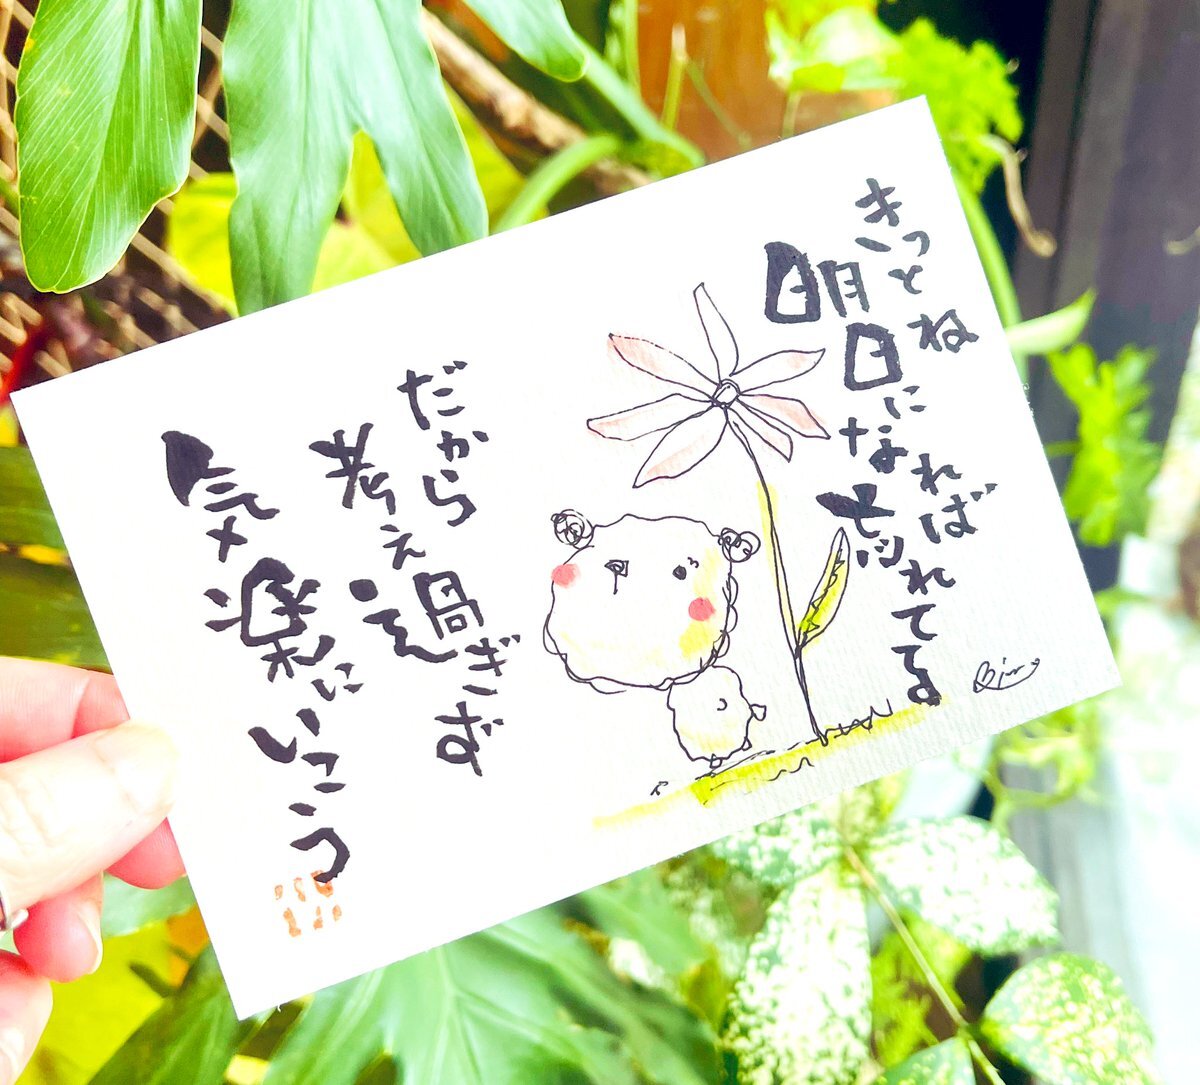 きっとね
明日になれば
忘れてる
だから
考え過ぎず
気楽にいこう